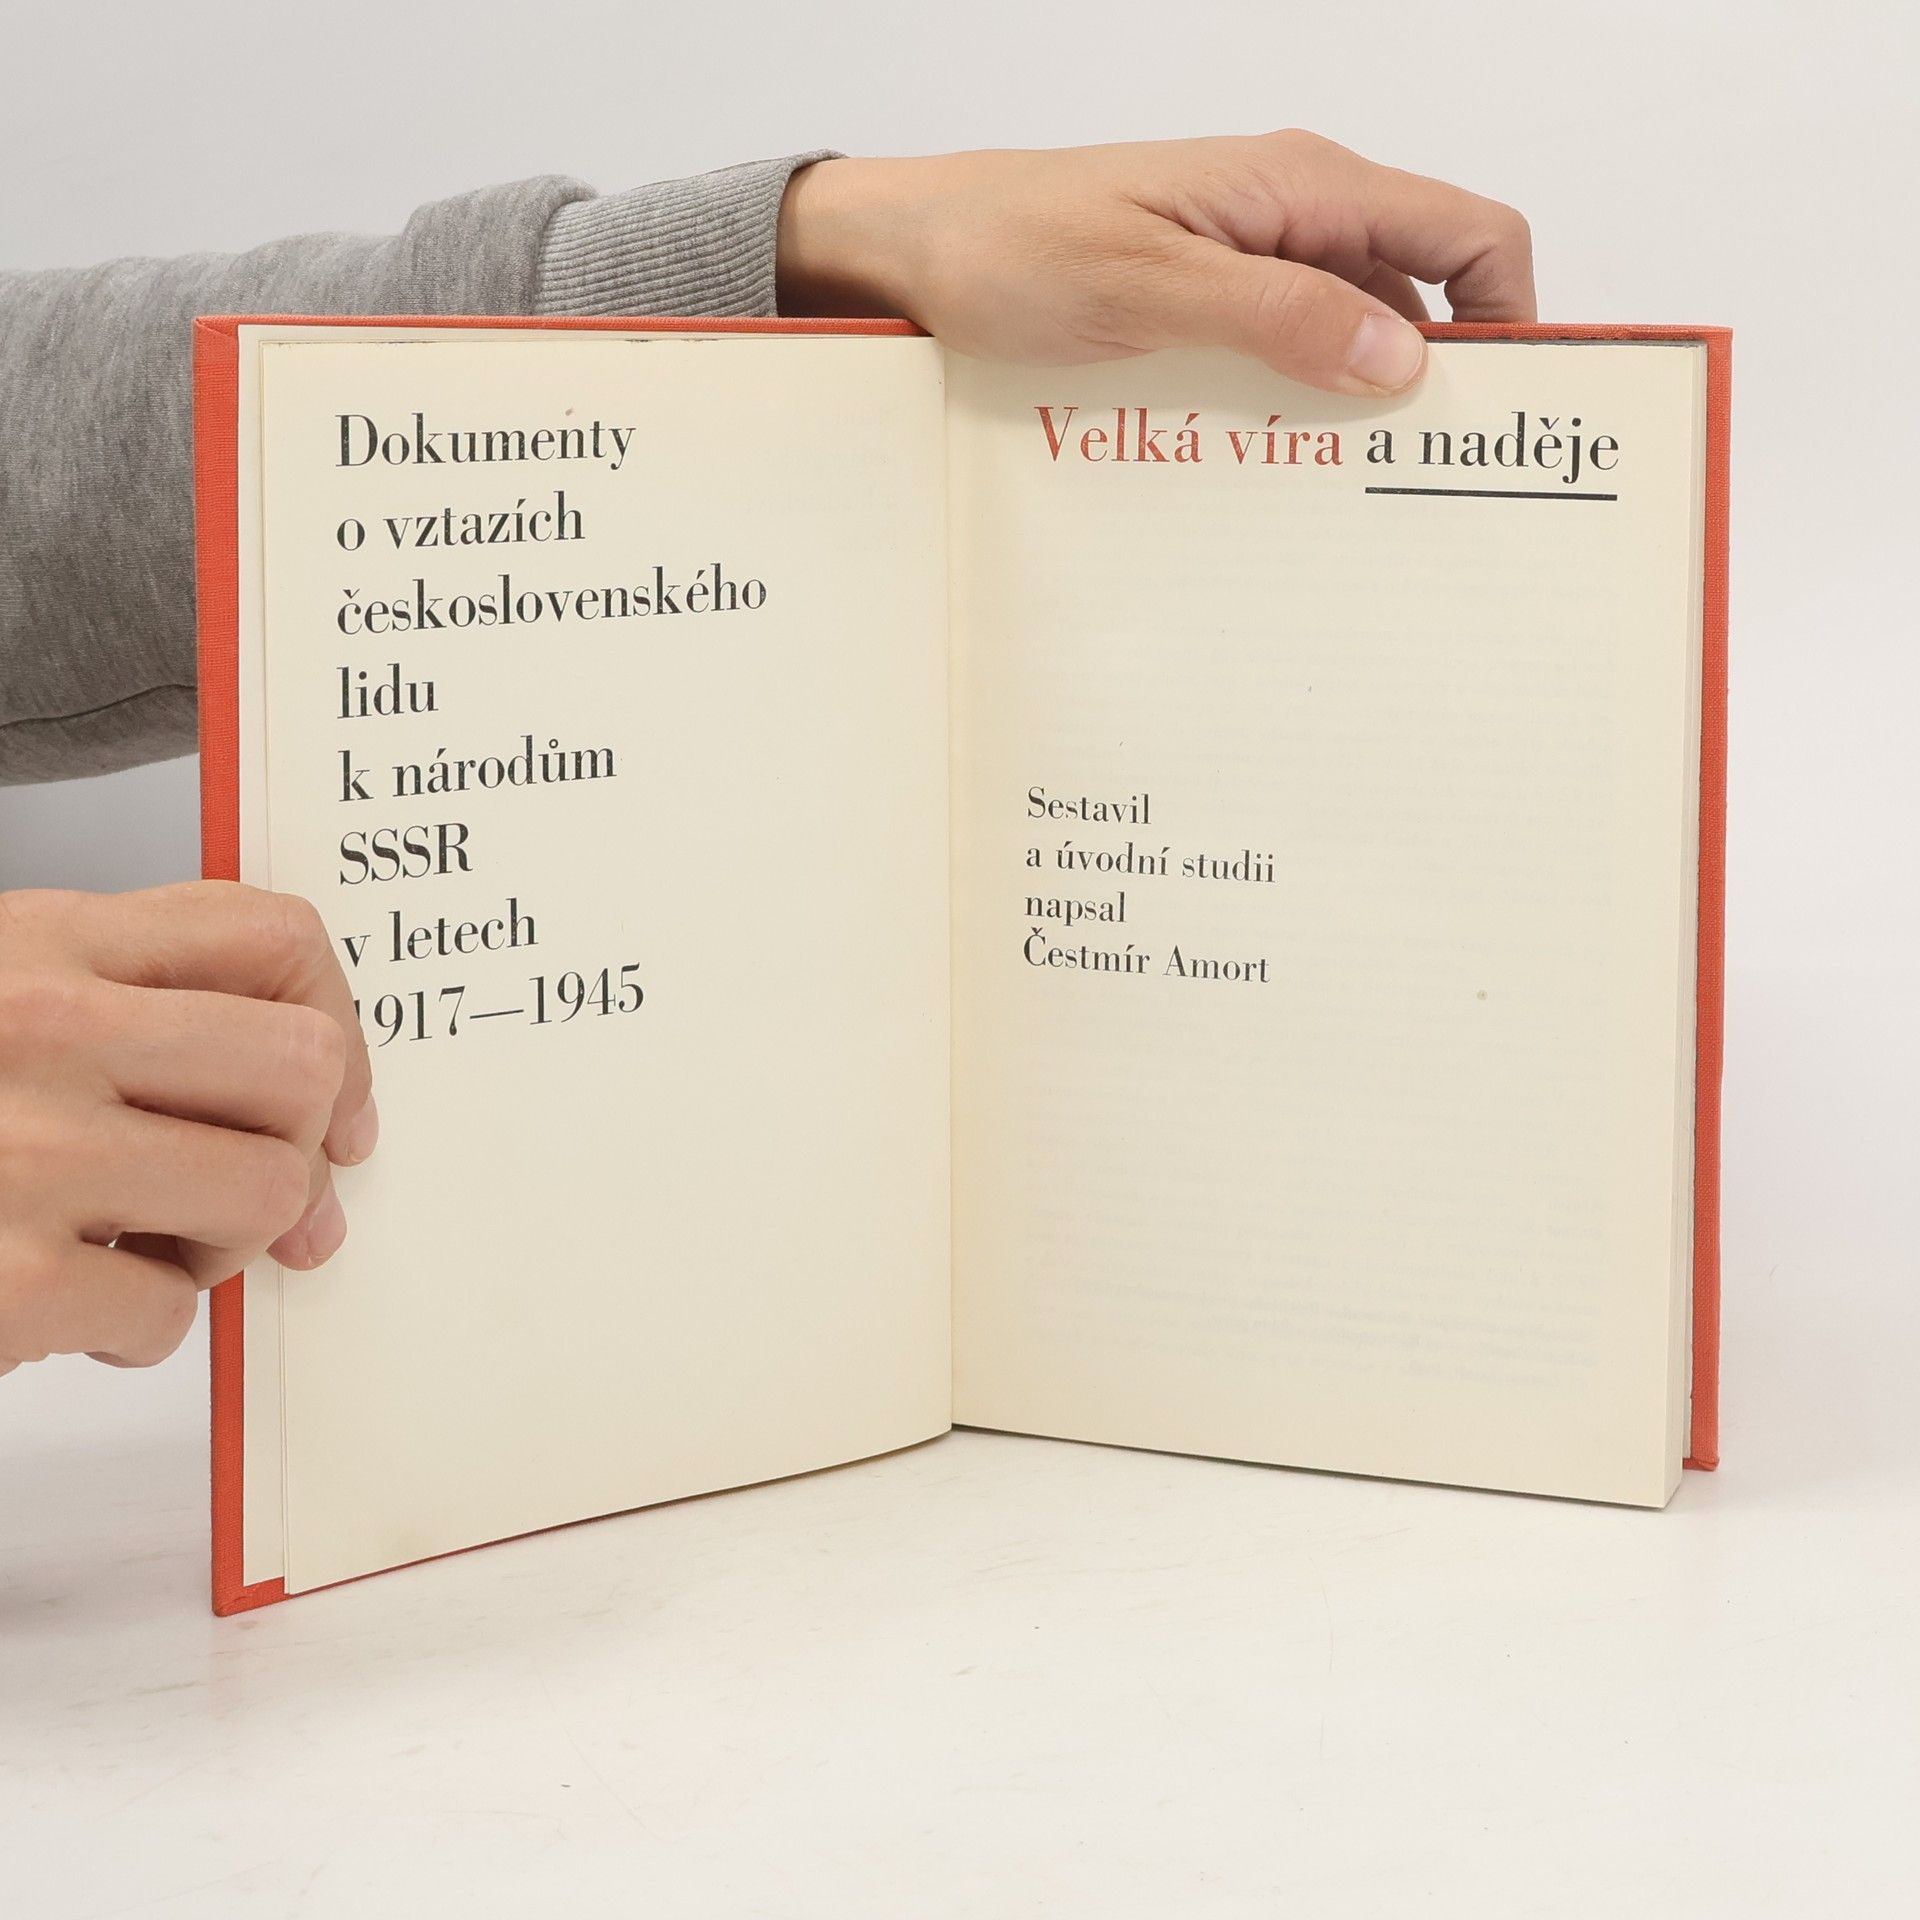 Dokumenty
o vztazích
československého
lidu
k národům
SSSR
v letech
1917—1945
Velká víra a naděje
Sestavil
a úvodní studii
napsal
Čestmír Amort